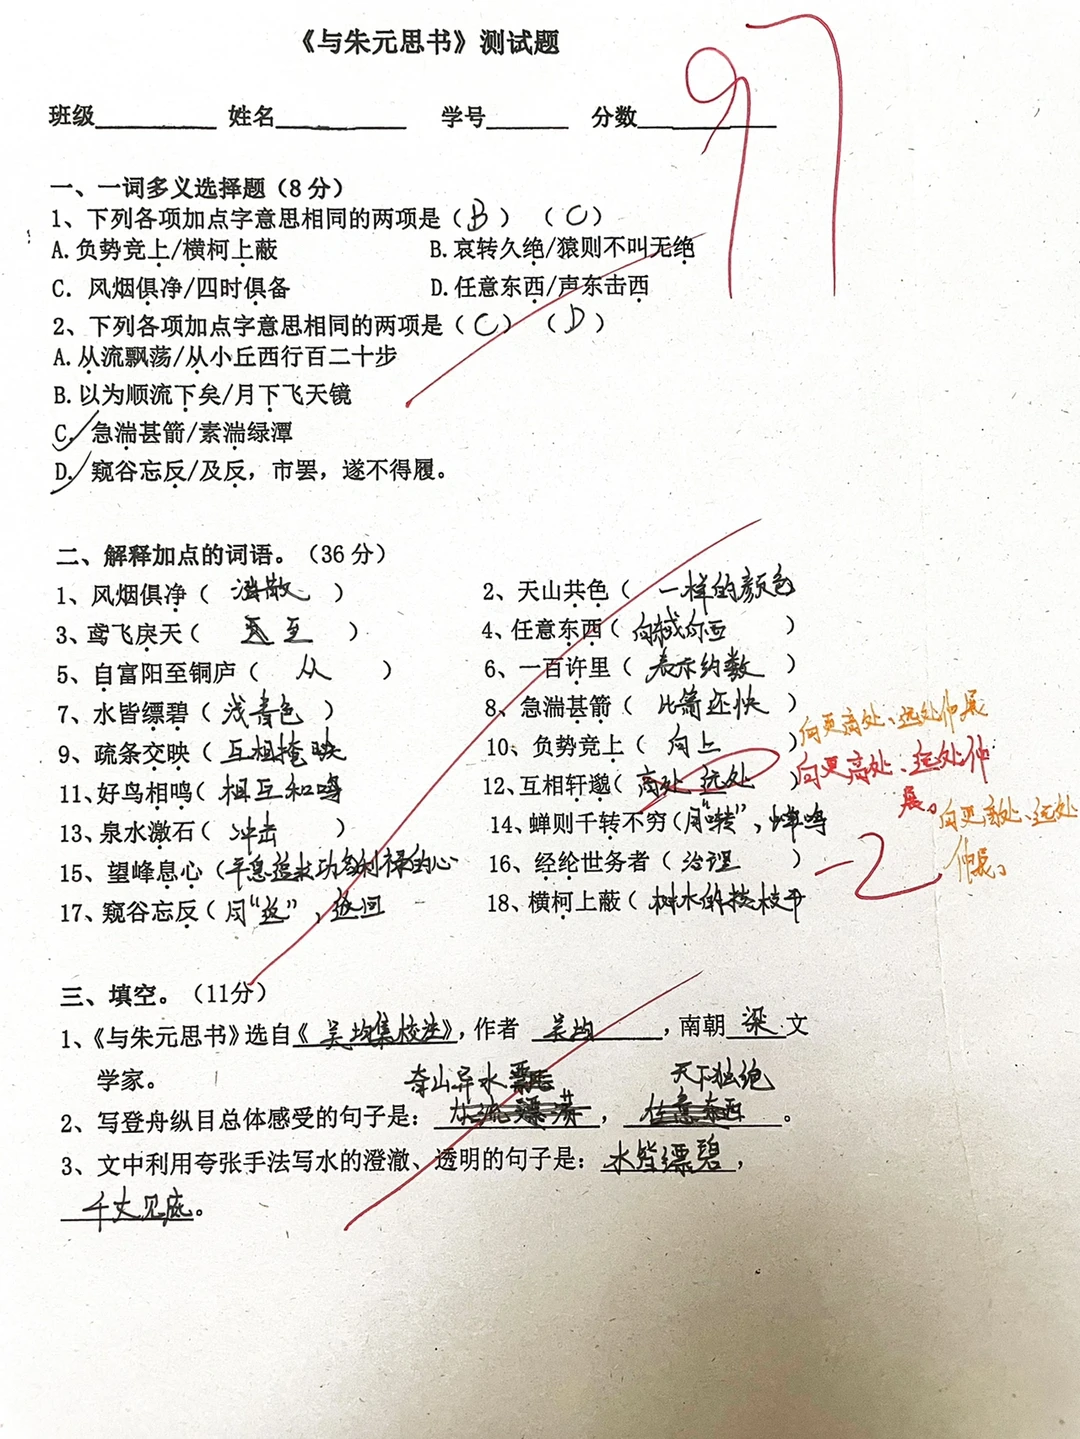 《与朱元思书》测试题
97
班级 姓名 学号 分数
一、一词多义选择题（8分）
1、下列各项加点字意思相同的两项是（B）（C）
A.负势竞上/横柯上蔽 B.哀转久绝/猿则不叫无绝
C. 风烟俱净/四时俱备 D.任意东西/声东击西
2、下列各项加点字意思相同的两项是（C）（D）
A.从流飘荡/从小丘西行百二十步
B.以为顺流下矣/月下飞天镜
C. 急湍甚箭/素湍绿潭
D. 窥谷忘反/及反，市罢，遂不得履。
二、解释加点的词语。（36分）
1、风烟俱净（消散） 2、天山共色（一样的颜色
3、鸢飞戾天（至） 4、任意东西（向东或向西）
5、自富阳至铜庐（从） 6、一百许里（表示约数）
7、水皆缥碧（浅青色） 8、急湍甚箭（比箭还快）
9、疏条交映（互相掩映 10、负势竞上（向上）向更高处、远处伸展
11、好鸟相鸣（相互和鸣 12、互相轩邈（高处 远处）向更高处、远处伸展。
13、泉水激石（冲击） 14、蝉则千转不穷（同“啭”，蝉鸣 向更高处、远处伸展。
15、望峰息心（平息追求功名利禄的心 16、经纶世务者（治理） -2
17、窥谷忘反（同“返”，返回 18、横柯上蔽（树木的枝
三、填空。（11分）
1、《与朱元思书》选自《吴均集校注》，作者 吴均，南朝 梁 文
学家。 奇山异水 天下独绝
2、写登舟纵目总体感受的句子是： ， 。
3、文中利用夸张手法写水的澄澈、透明的句子是：水皆缥碧，
千丈见底。